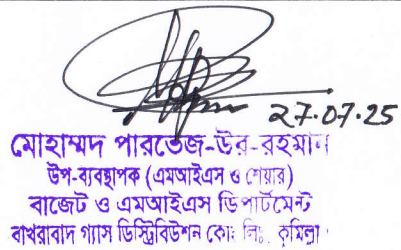 27.07.25
মোহাম্মদ পারভেজ-উর-রহমান
উপ-ব্যবস্থাপক (এমআইএস ও শেয়ার)
বাজেট ও এমআইএস ডিপার্টমেন্ট
বাখরাবাদ গ্যাস ডিস্ট্রিবিউশন কোঃ লিঃ, কুমিল্লা।